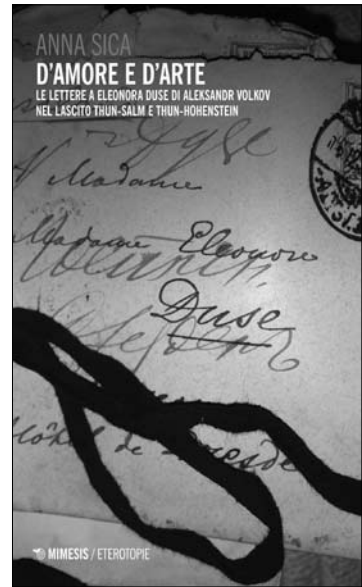 ANNA SICA
D'AMORE E D'ARTE
LE LETTERE A ELEONORA DUSE DI ALEKSANDR VOLKOV
NEL LASCITO THUN-SALM E THUN-HOHENSTEIN
Madame
Madame Eleonore
Duse
Hôtel de
MIMESIS / ETEROTOPIE